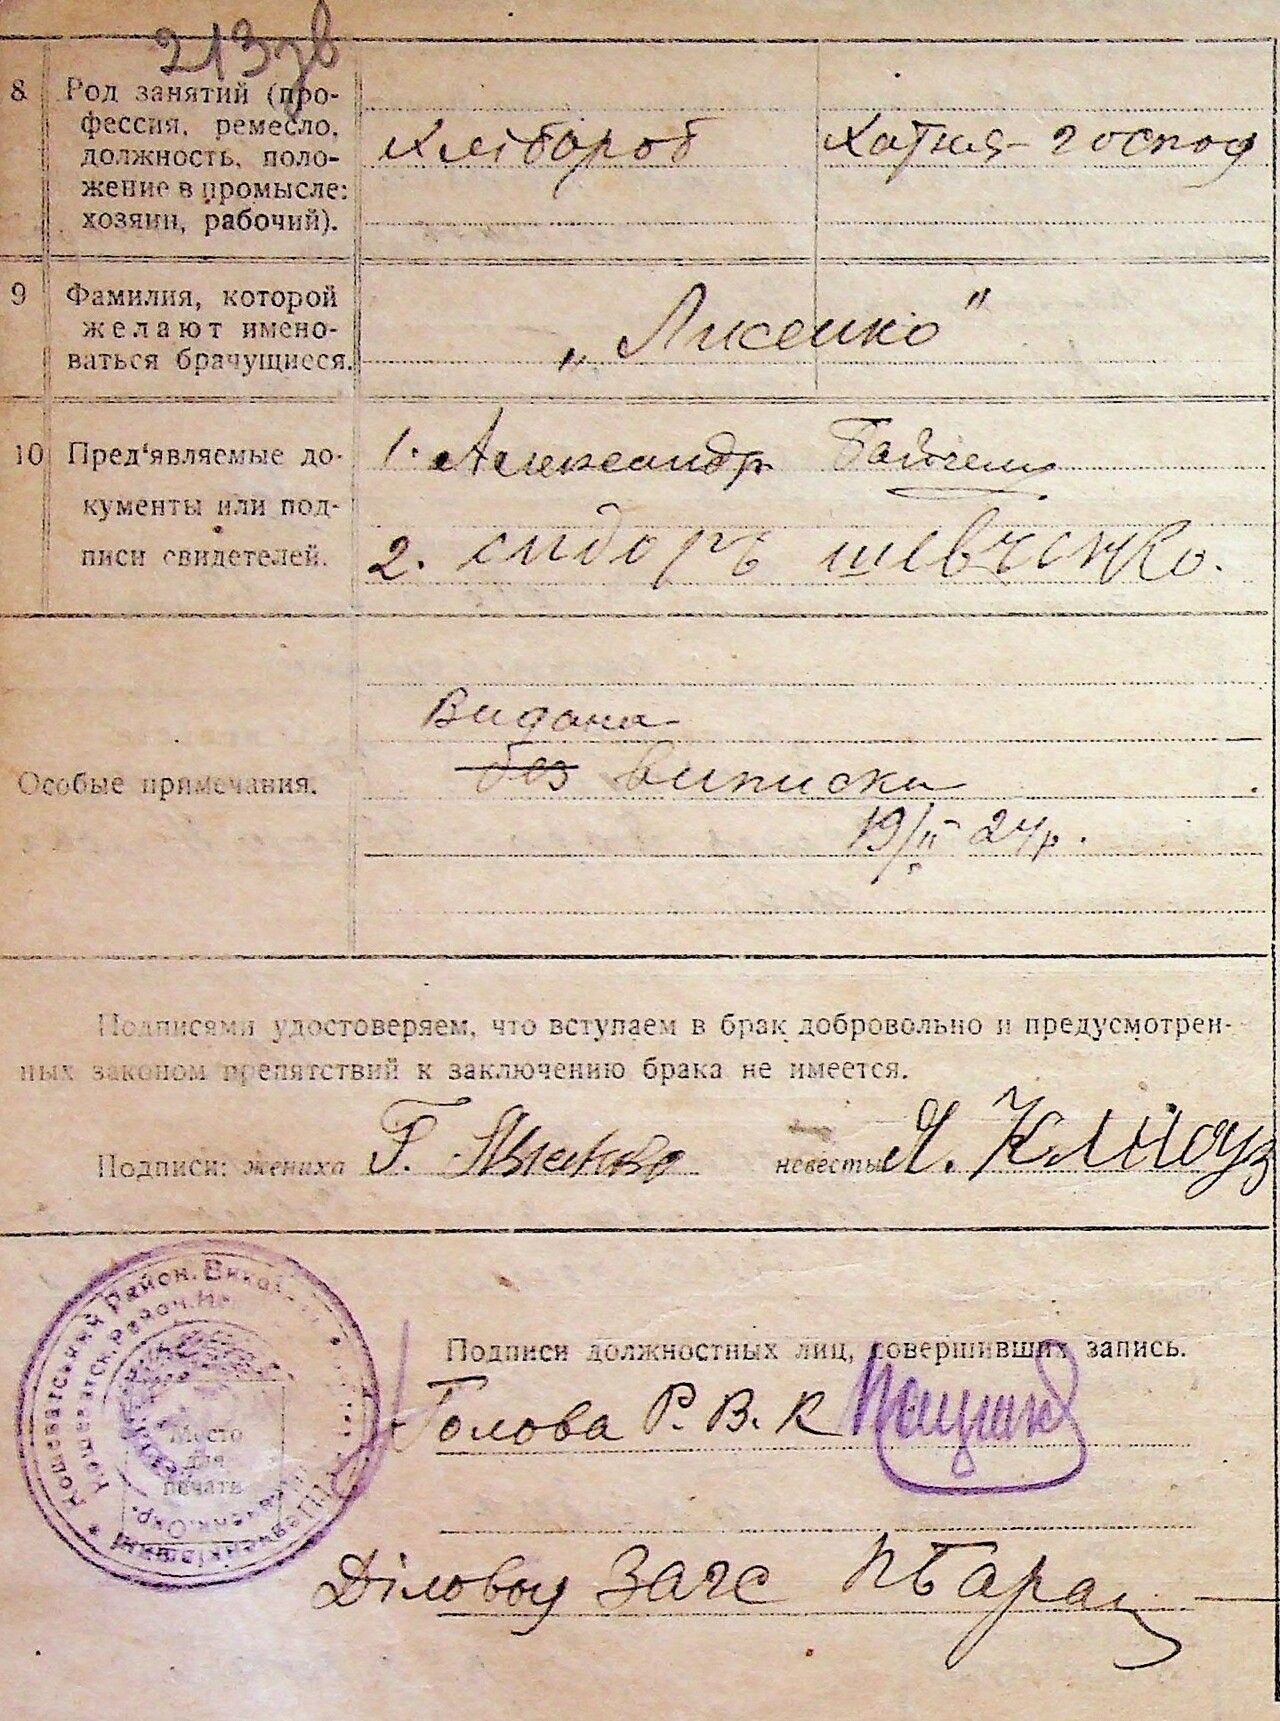 213 зв
8 Род занятий (про-
фессия, ремесло,
должность, поло-
жение в промысле:
хозяин, рабочий).
Хлібороб Хатня господ
9 Фамилия, которой
желают имено-
ваться брачущиеся.
„Лисенко"
10 Пред'являемые до-
кументы или под-
писи свидетелей.
1. Александр
2. сидоръ шевченко.
Особые примечания.
Видана
без виписка
19/II 24 р.
Подписями удостоверяем, что вступаем в брак добровольно и предусмотрен-
ных законом препятствий к заключению брака не имеется.
Подписи: жениха Г. Лисенко невесты Я. Клноуз
Подписи должностных лиц, совершивших запись.
Голова Р. В. К
Место
для
печати
Діловод ЗАГС